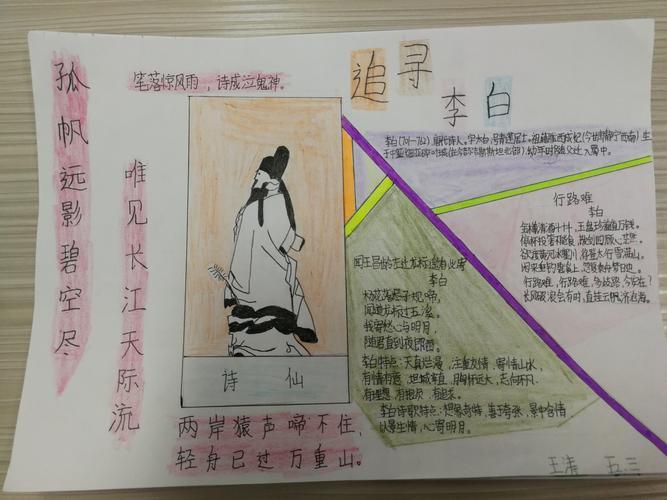 孤帆远影碧空尽
唯见长江天际流
笔落惊风雨，诗成泣鬼神。
诗仙
两岸猿声啼不住，
轻舟已过万重山。
追寻
李白
李白(701-762)唐代诗人。字太白，号青莲居士。祖籍陇西成纪(今甘肃静宁西南)生
幼年时随父迁入蜀中。
行路难
李白
金樽清酒斗十千，玉盘珍羞直万钱。
停杯投箸不能食，拔剑四顾心茫然。
欲渡黄河冰塞川，将登太行雪满山。
闲来垂钓碧溪上，忽复乘舟梦日边。
行路难，行路难，多歧路，今安在？
长风破浪会有时，直挂云帆济沧海。
闻王昌龄左迁龙标遥有此寄
李白
杨花落尽子规啼，
闻道龙标过五溪。
我寄愁心与明月，
随君直到夜郎西。
李白特点：天真烂漫，注重友情，寄情山水，
有情有意，坦城率直，胸怀远大，志向不凡
有理想，有抱负，有追求。
李白诗歌特点：想象奇特，善于夸张，景中含情
以景生情，心寄明月。
五三